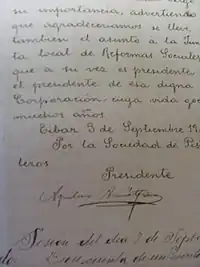 su importancia, advertiendo
que agradeceriamos se lleve
tambien el asunto á la Jun
ta local de Reformas Sociales
que a su vez es presidente
el presidente de esa digna
Corporacion cuya vida gue
muchos años.
Eibar 3 de Septiembre 19
Por la Sociedad de Pis
teros
Presidente
Sesion del dia 7 de Septe